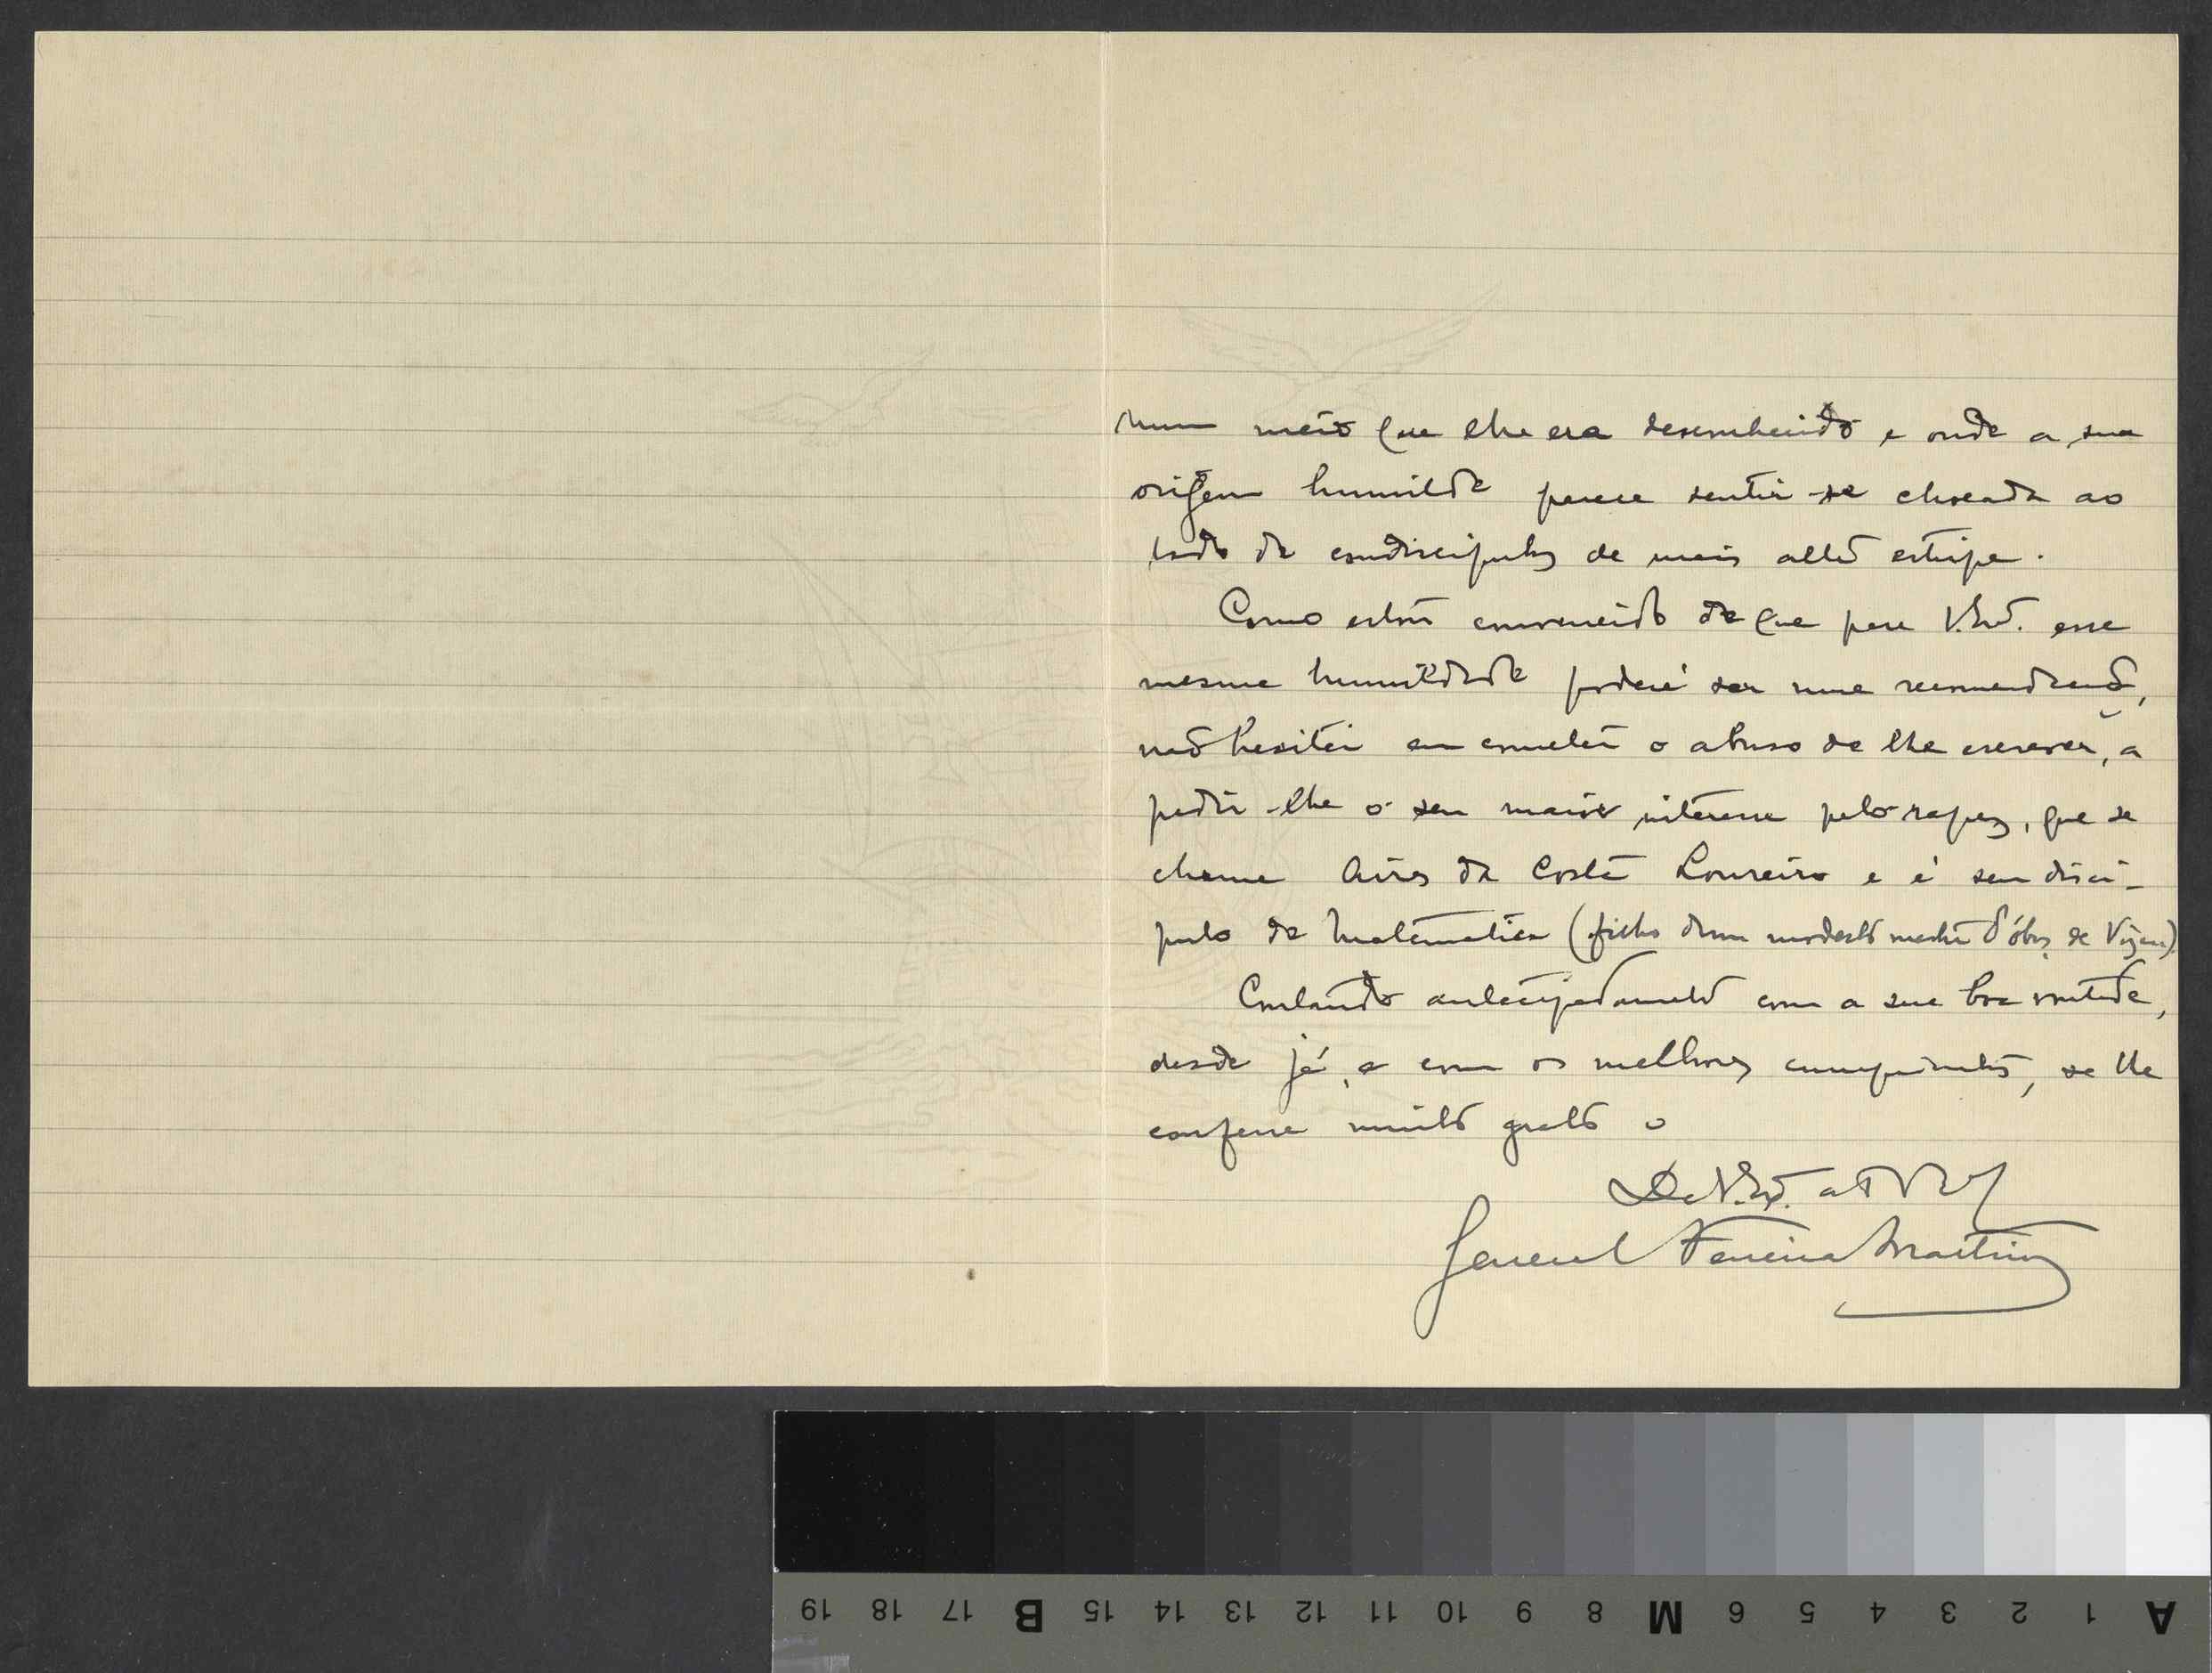 num meio que lhe era desconhecido e onde a sua
origem humilde parece sentir-se chocada ao
lado de condiscipulos de mais alta estirpe.
Como estou convencido de que para V. Exª. essa
mesma humildade poderá ser uma recomendação,
não hesitei em cometer o abuso de lhe escrever, a
pedir-lhe o seu maior interesse pelo rapaz, que se
chama Aires da Costa Loureiro e é seu disci-
pulo de Matematica (filho dum modesto mestre d'óbras de Vizeu).
Contando antecipadamente com a sua boa vontade,
desde já, e com os melhores cumprimentos, se lhe
confessa muito grato o
De V. Exª.
General Ferreira Martins
A 1 2 3 4 5 6 M 8 9 10 11 12 13 14 15 B 17 18 19